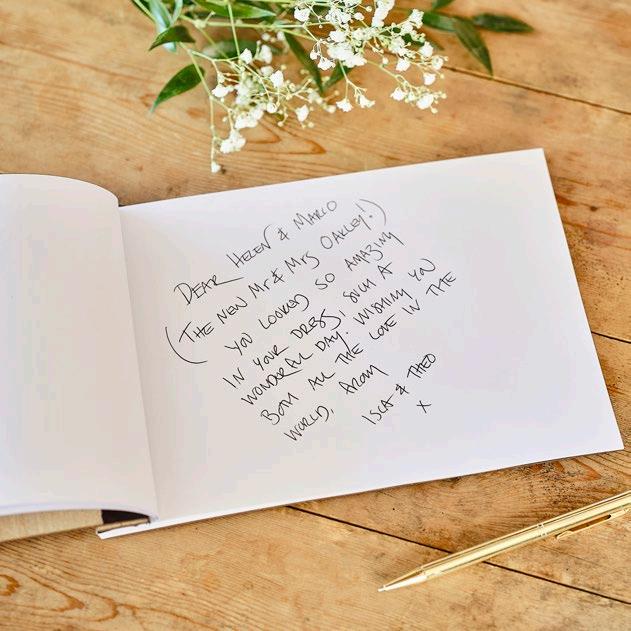 DEAR HELEN & MARCO
(THE NEW MR & MRS OAKLEY!)
YOU LOOKED SO AMAZING
IN YOUR DRESS, SUCH A
WONDERFUL DAY. WISHING YOU
BOTH ALL THE LOVE IN THE
WORLD, FROM
ISLA & THEO
X